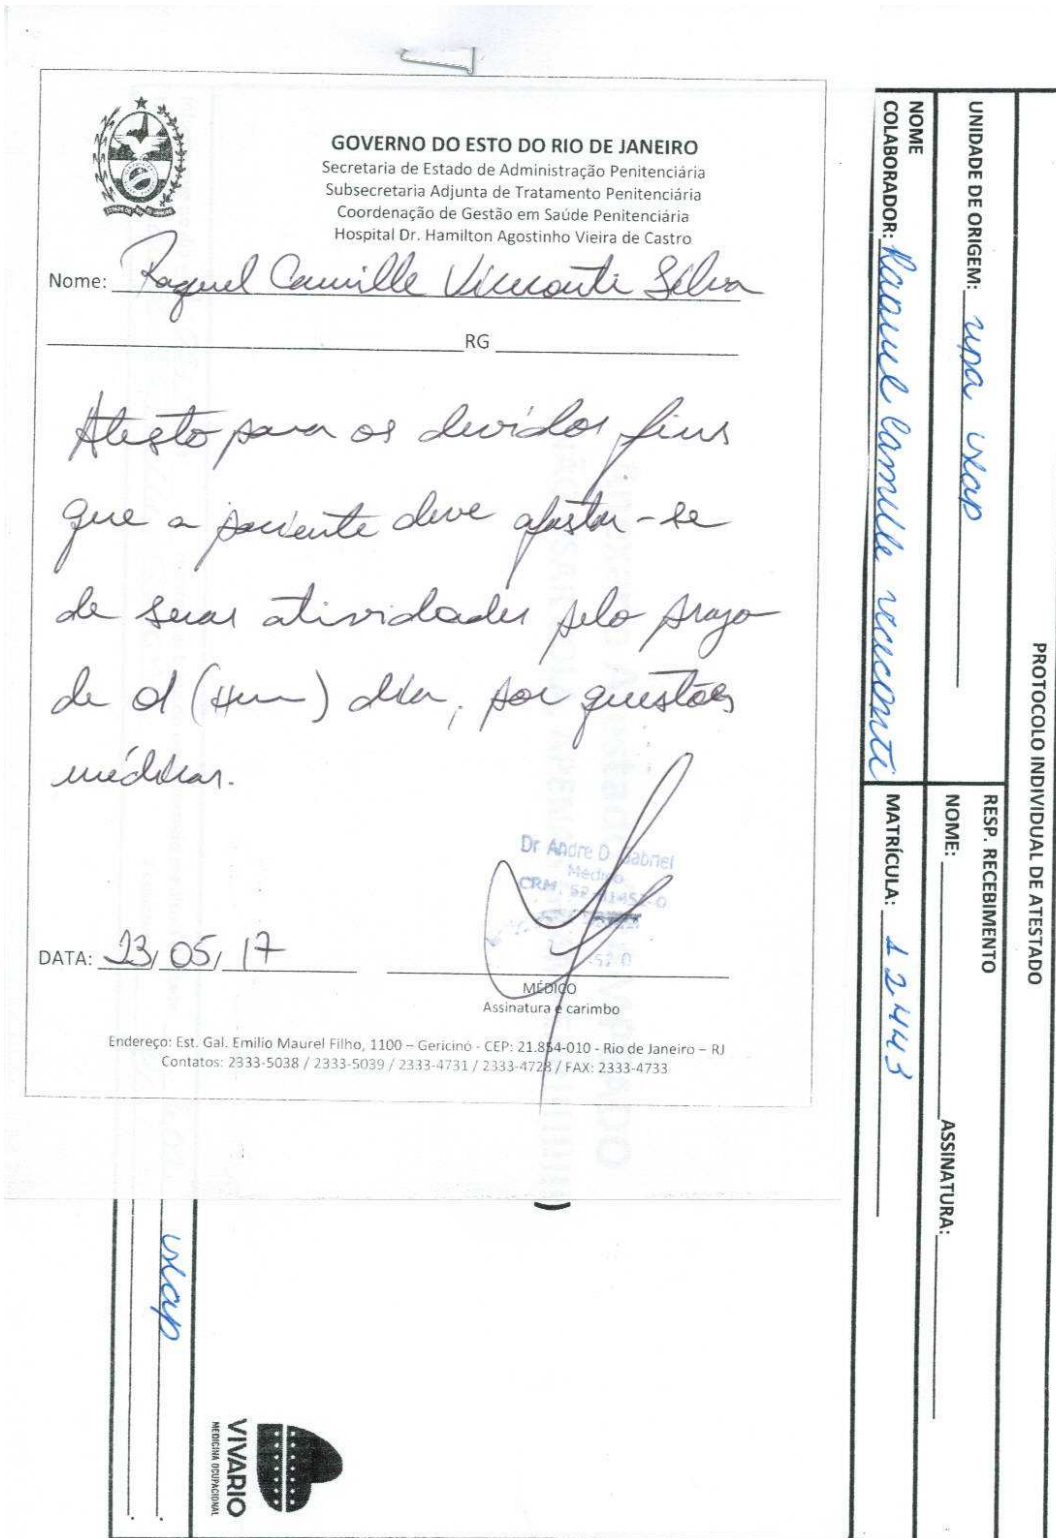 GOVERNO DO ESTO DO RIO DE JANEIRO
Secretaria de Estado de Administração Penitenciária
Subsecretaria Adjunta de Tratamento Penitenciária
Coordenação de Gestão em Saúde Penitenciária
Hospital Dr. Hamilton Agostinho Vieira de Castro
Nome: Raquel Camille Visconti Silva
RG
Atesto para os devidos fins
que a paciente deve afastar-se
de suas atividades pelo prazo
de 01 (Hum) dia, por questões
médicas.
Dr Andre D Gabriel
Médico
CRM
DATA: 23/05/17
MÉDICO
Assinatura e carimbo
Endereço: Est. Gal. Emilio Maurel Filho, 1100 – Gericinó - CEP: 21.854-010 - Rio de Janeiro – RJ
Contatos: 2333-5038 / 2333-5039 / 2333-4731 / 2333-4728 / FAX: 2333-4733
PROTOCOLO INDIVIDUAL DE ATESTADO
UNIDADE DE ORIGEM: upa
RESP. RECEBIMENTO
NOME: ASSINATURA:
NOME
COLABORADOR: Raquel Camille Visconti MATRÍCULA: 12443
VIVARIO
MEDICINA OCUPACIONAL